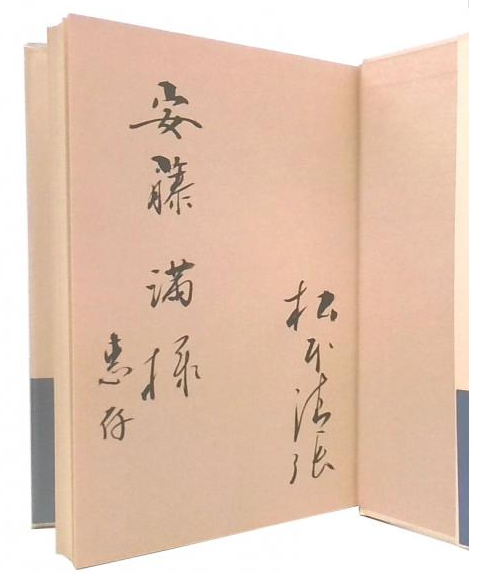 松本清張
安藤満様
恵存